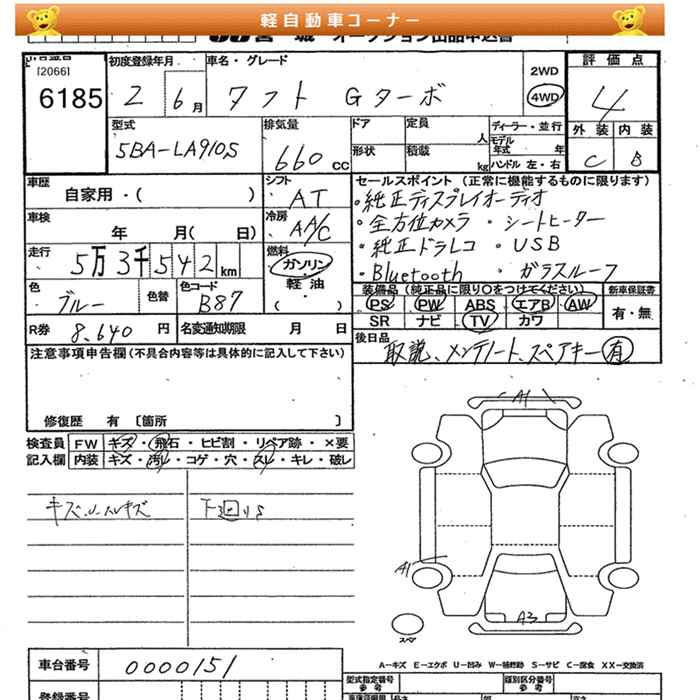 軽自動車コーナー
オークション出品申込書
[2066]
6185
初度登録年月
2 6月
車名・グレード
タフト Gターボ
2WD
4WD
評価点
4
外装 内装
C B
型式
5BA-LA910S
排気量
660 CC
ドア
形状
定員
人
積載
kg
ディーラー・並行
モデル年式 年
ハンドル 左・右
車歴
自家用・( )
シフト
AT
車検
年 月( 日)
冷房
AA/C
走行
5万3千542km
燃料
ガソリン
軽油
( )
色
ブルー
色替
色コード
B87
R券 8,640 円
名変通知期限 月 日
セールスポイント (正常に機能するものに限ります)
・純正ディスプレイオーディオ
・全方位カメラ ・シートヒーター
・純正ドラレコ ・USB
・Bluetooth ・ガラスルーフ
装備品 (純正品に限り○をつけてください)
新車保証書
PS PW ABS エアB AW
SR ナビ TV カワ
有・無
後日品
取説、メンテノート、スペアキー 有
注意事項申告欄(不具合内容等は具体的に記入して下さい)
修復歴 有 〔箇所 〕
検査員記入欄
FW キズ・飛石・ヒビ割・リペア跡・×要
内装 キズ・汚レ・コゲ・穴・スレ・キレ・破レ
下回りS
A1
A1
A3
スペア
A-キズ E-エクボ U-凹み W-補修跡 S-サビ C-腐食 XX-交換済
車台番号
0000151
型式指定番号
参考
類別区分番号
参考
登録番号
長さ
幅
高さ